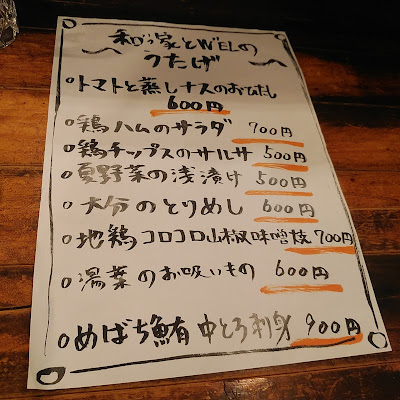 和う家とW'ELの
うたげ
○トマトと蒸しナスのおひたし
600円
○鶏ハムのサラダ 700円
○鶏チップスのサルサ 500円
○夏野菜の浅漬け 500円
○大分のとりめし 600円
○地鶏コロコロ山椒味噌技 700円
○湯葉のお吸いもの 600円
○めばち鮪 中とろ刺身 900円